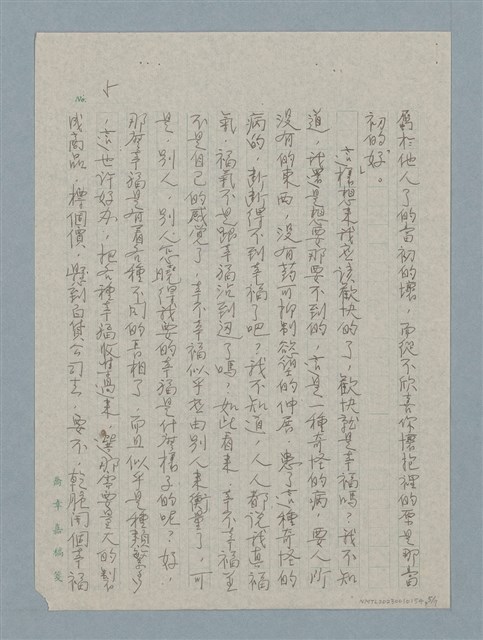 屬於他人了的當初的壞，而從不欣喜你懷抱裡的原是那當
初的好」。
這樣想來我应该歡快的了，歡快就是幸福嗎？我不知
道，我還是想要那要不到的，這是一種奇怪的病，要人所
没有的東西，没有葯可抑制慾望的伸展，患了這種奇怪的
病的，斷斷得不到幸福了吧？我不知道，人人都说我真福
氣，福氣不是跟幸福沾到边了嗎？如此看来，幸不幸福並
不是自己的感覺了，幸不幸福似乎应由別人来衡量了，可
是，別人，別人怎曉得我要的幸福是什麼樣子的呢？好，
那麼幸福是有着各種不同的长相了，而且似乎是種類繁多
，這也许好办，把各種幸福收集過来，選那需要量大的製
成商品，標個價，賣到百貨公司去，要不，乾脆開個幸福
No. 5
稿箋
NMTL20070010154 p5/7